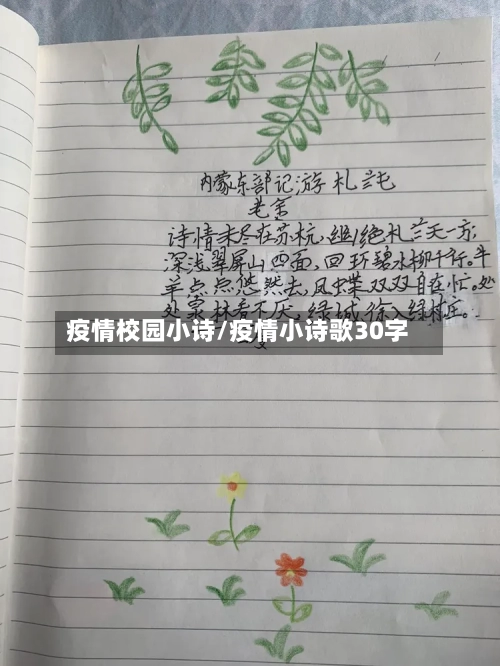 内蒙东部记游 札兰屯
老舍
诗情未尽在苏杭,幽绝札兰天一方;
深浅翠屏山四面,回环碧水柳千行。牛
羊点点悠然去,凤蝶双双自在忙。处
处泉林看不厌,绿城徐入绿村庄。
疫情校园小诗/疫情小诗歌30字